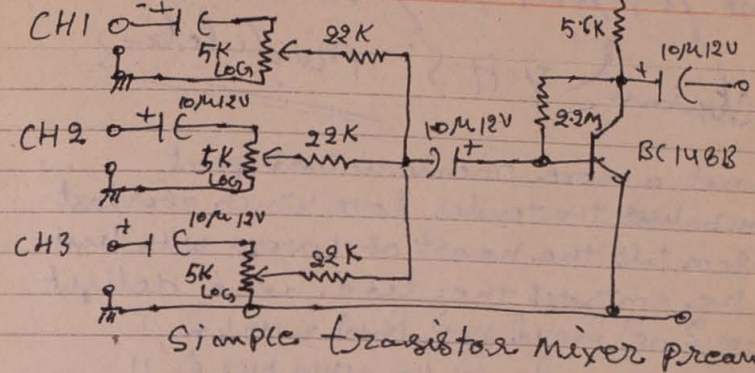 CH1
- +
5K
LOG
22K
5.6K
10µ12V
+
CH2
+
10µ12V
5K
LOG
22K
10µ12V
+
2.2M
BC148B
CH3
+
10µ12V
5K
LOG
22K
simple trasistor mixer pream